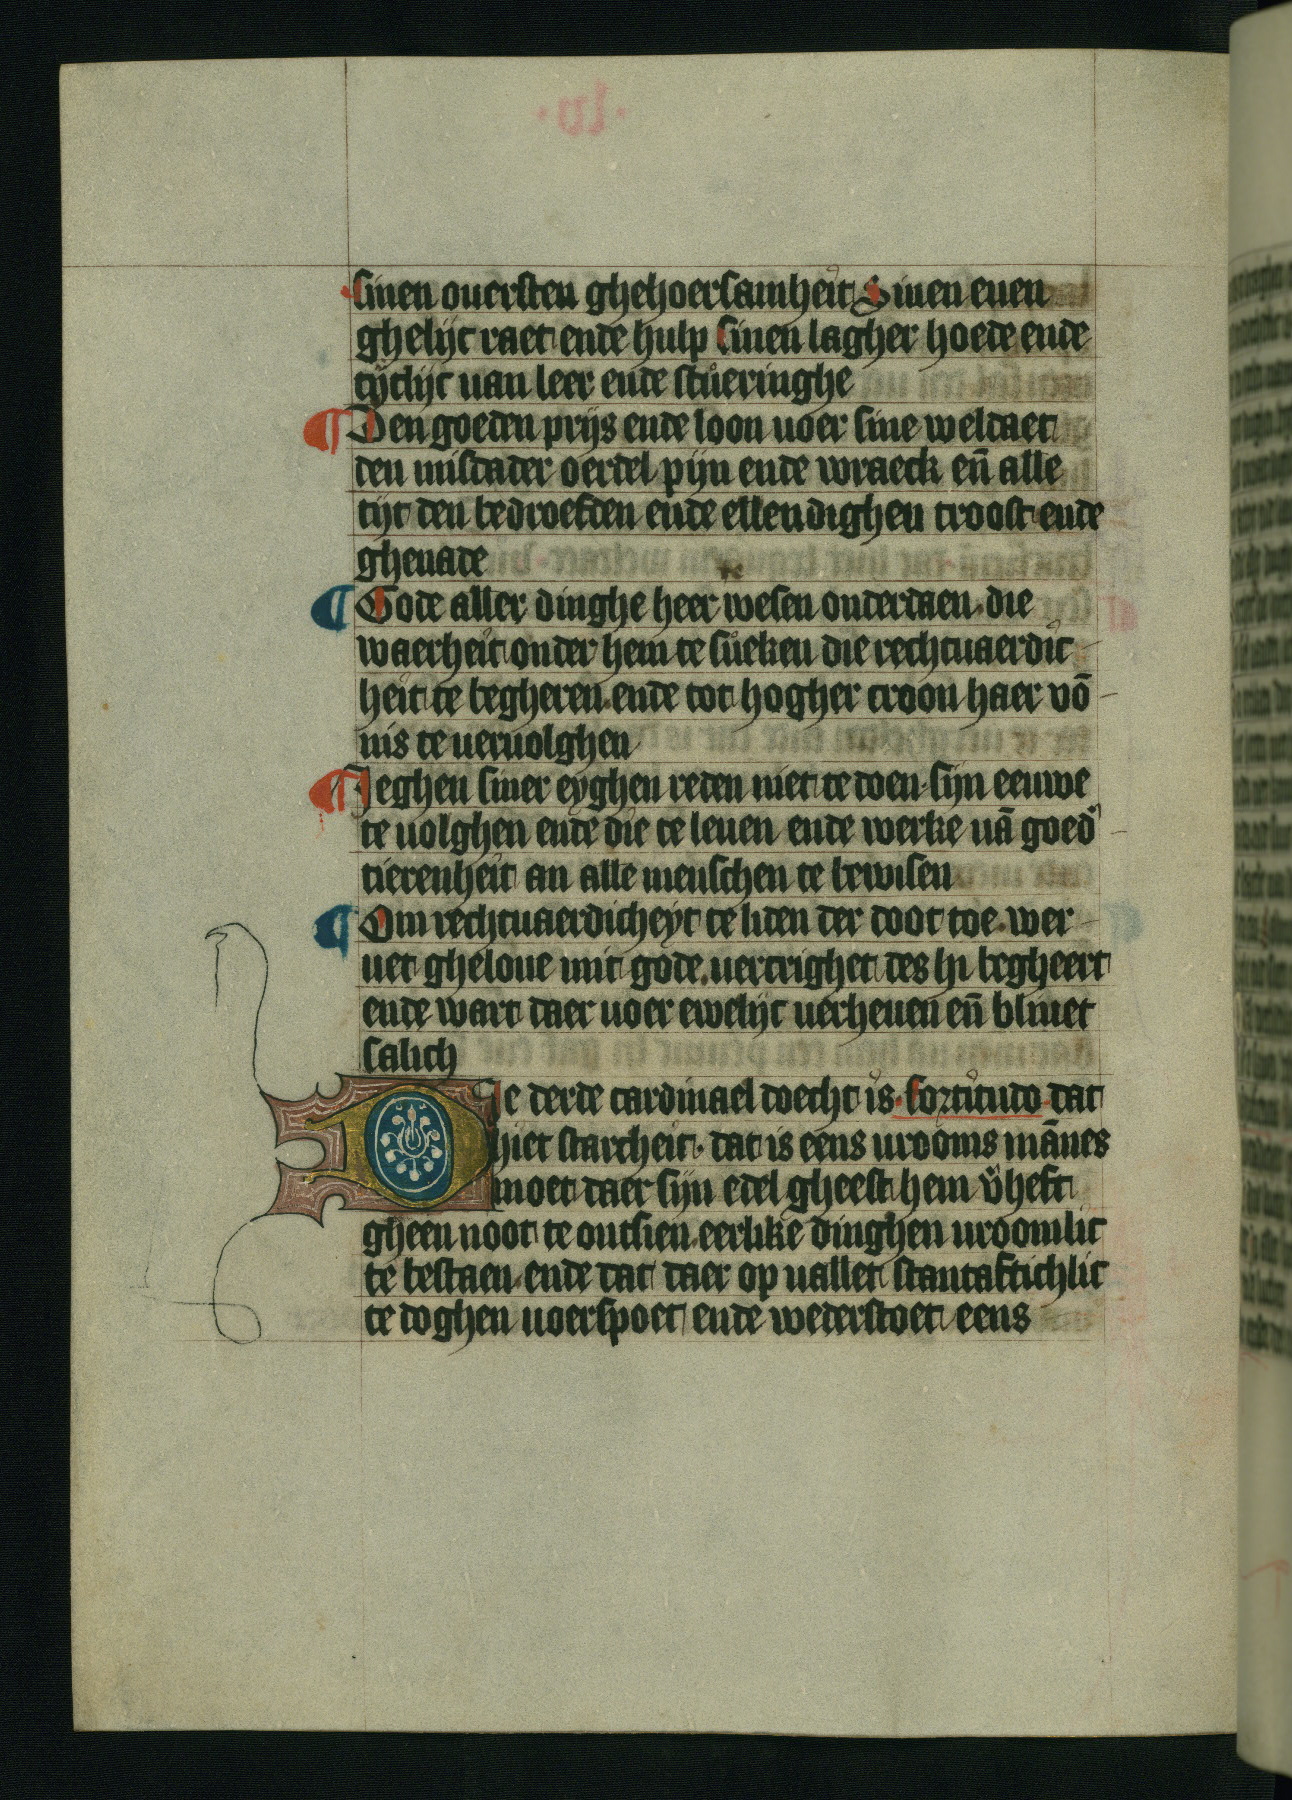 sinen ouersten ghehoersamheit Sinen euen
ghelijc raet ende hulp sinen lagher hoede ende
tijdlijc van leer ende stueringhe
¶ Den goeden prijs ende loon uoer sine weldaet
den misdader oerdel pijn ende wraeck eñ alle
tijt den bedroefden ende ellendighen troost ende
ghenade
¶ Gode aller dinghe heer wesen onderdaen. die
waerheit onder hem te sueken die rechtuaerdic
heit te begheren. ende tot hogher troon haer vō
nis te veruolghen
¶ Jeghen siner eyghen reden niet te doen. sijn eeuwe
te uolghen ende die te leuen ende werke uā goed
tierenheit an alle menschen te bewisen
¶ Om rechtuaerdicheyt te liden der doot toe. wer
uet gheloue mit gode. uercrighet des hi begheert
ende wart daer uoer ewelijc uerheuen eñ bliuet
salich
De derde cardinael doecht is. fortitudo. dat
hiet starcheit. dat is eens urooms mānes
moet daer sijn edel gheest hem v̄heft
gheen noot te ontsien. eerlike dinghen uroomlic
te bestaen. ende dat daer op uallet stantaftichlic
te doghen uoerspoet ende wederstoet eens